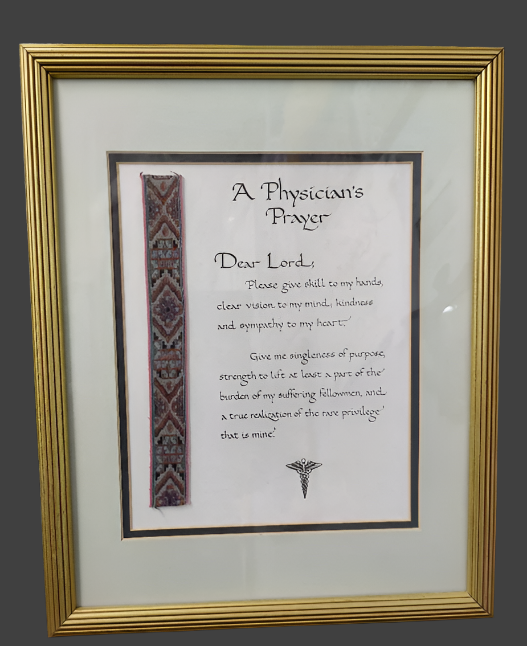 A Physician's
Prayer
Dear Lord,
Please give skill to my hands,
clear vision to my mind, kindness
and sympathy to my heart.
Give me singleness of purpose,
strength to lift at least a part of the
burden of my suffering fellowmen, and
a true realization of the rare privilege
that is mine.